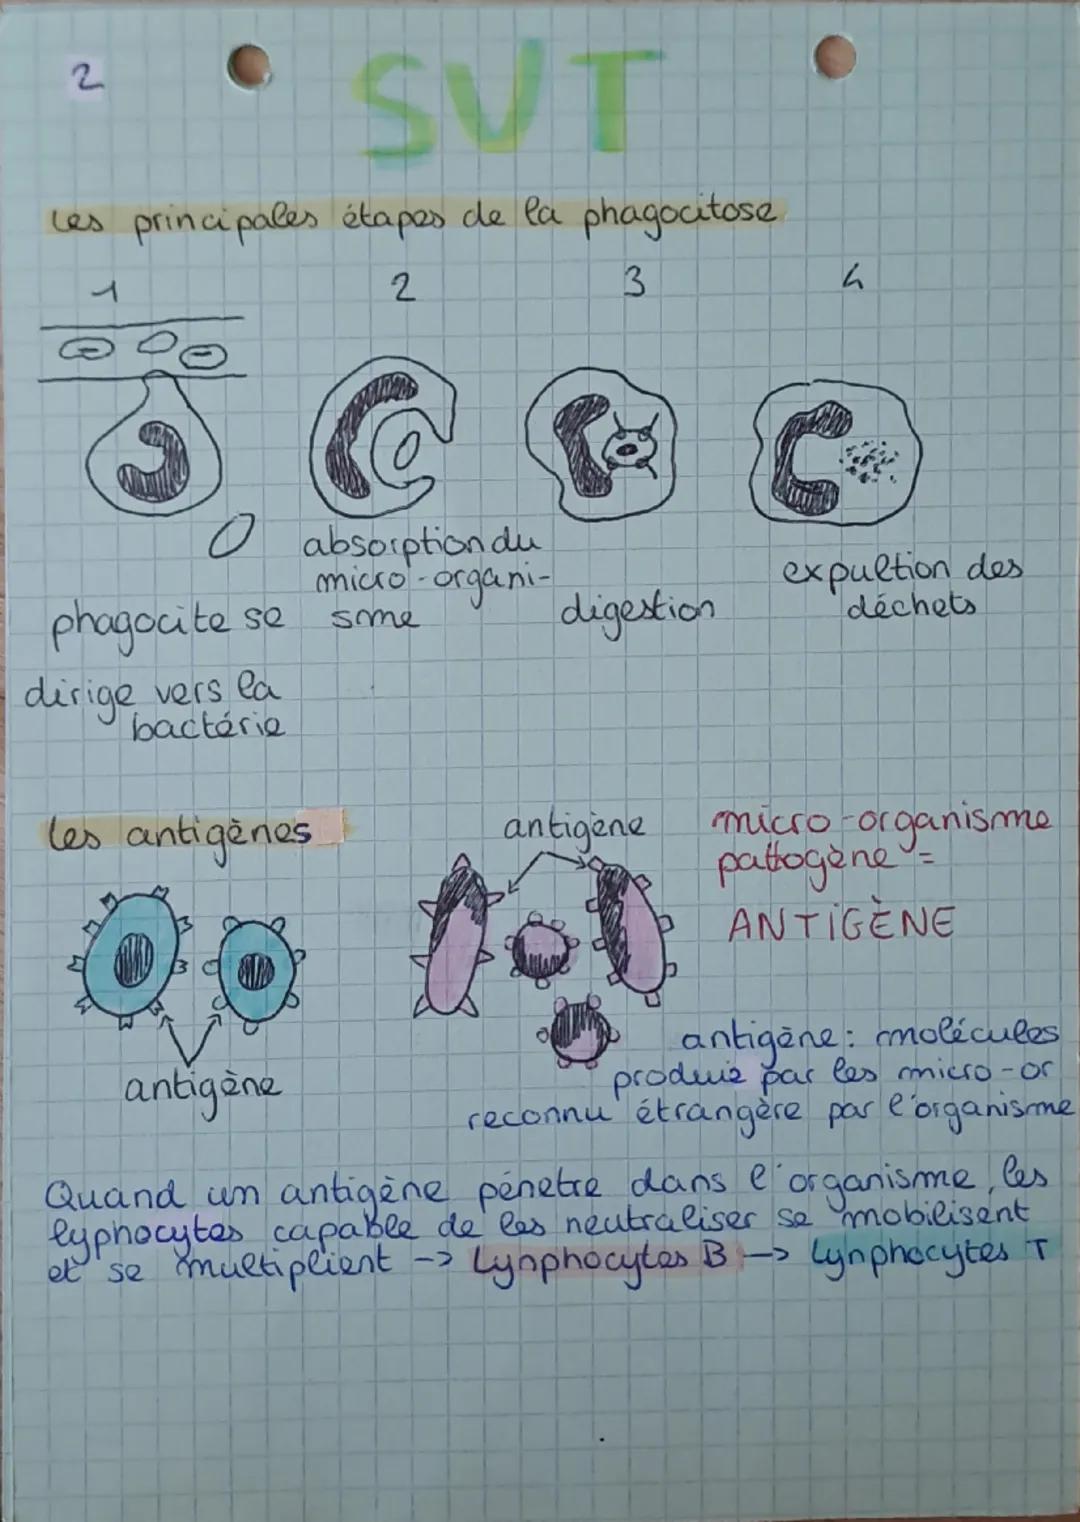 2
SVT
Les principales étapes de la phagocitose
1 2 3 4
absorption du
micro-organi-
sme
phagocite se
dirige vers la
bactérie
digestion
expultion des
déchets
les antigènes
antigène
antigène
micro-organisme
pattogène =
ANTIGÈNE
antigène : molécules
produie par les micro-or
reconnu étrangère par l'organisme
Quand un antigène pénetre dans l'organisme, les
lyphocytes capable de les neutraliser se mobilisent
et se multiplient -> Lynphocytes B -> Lynphocytes T